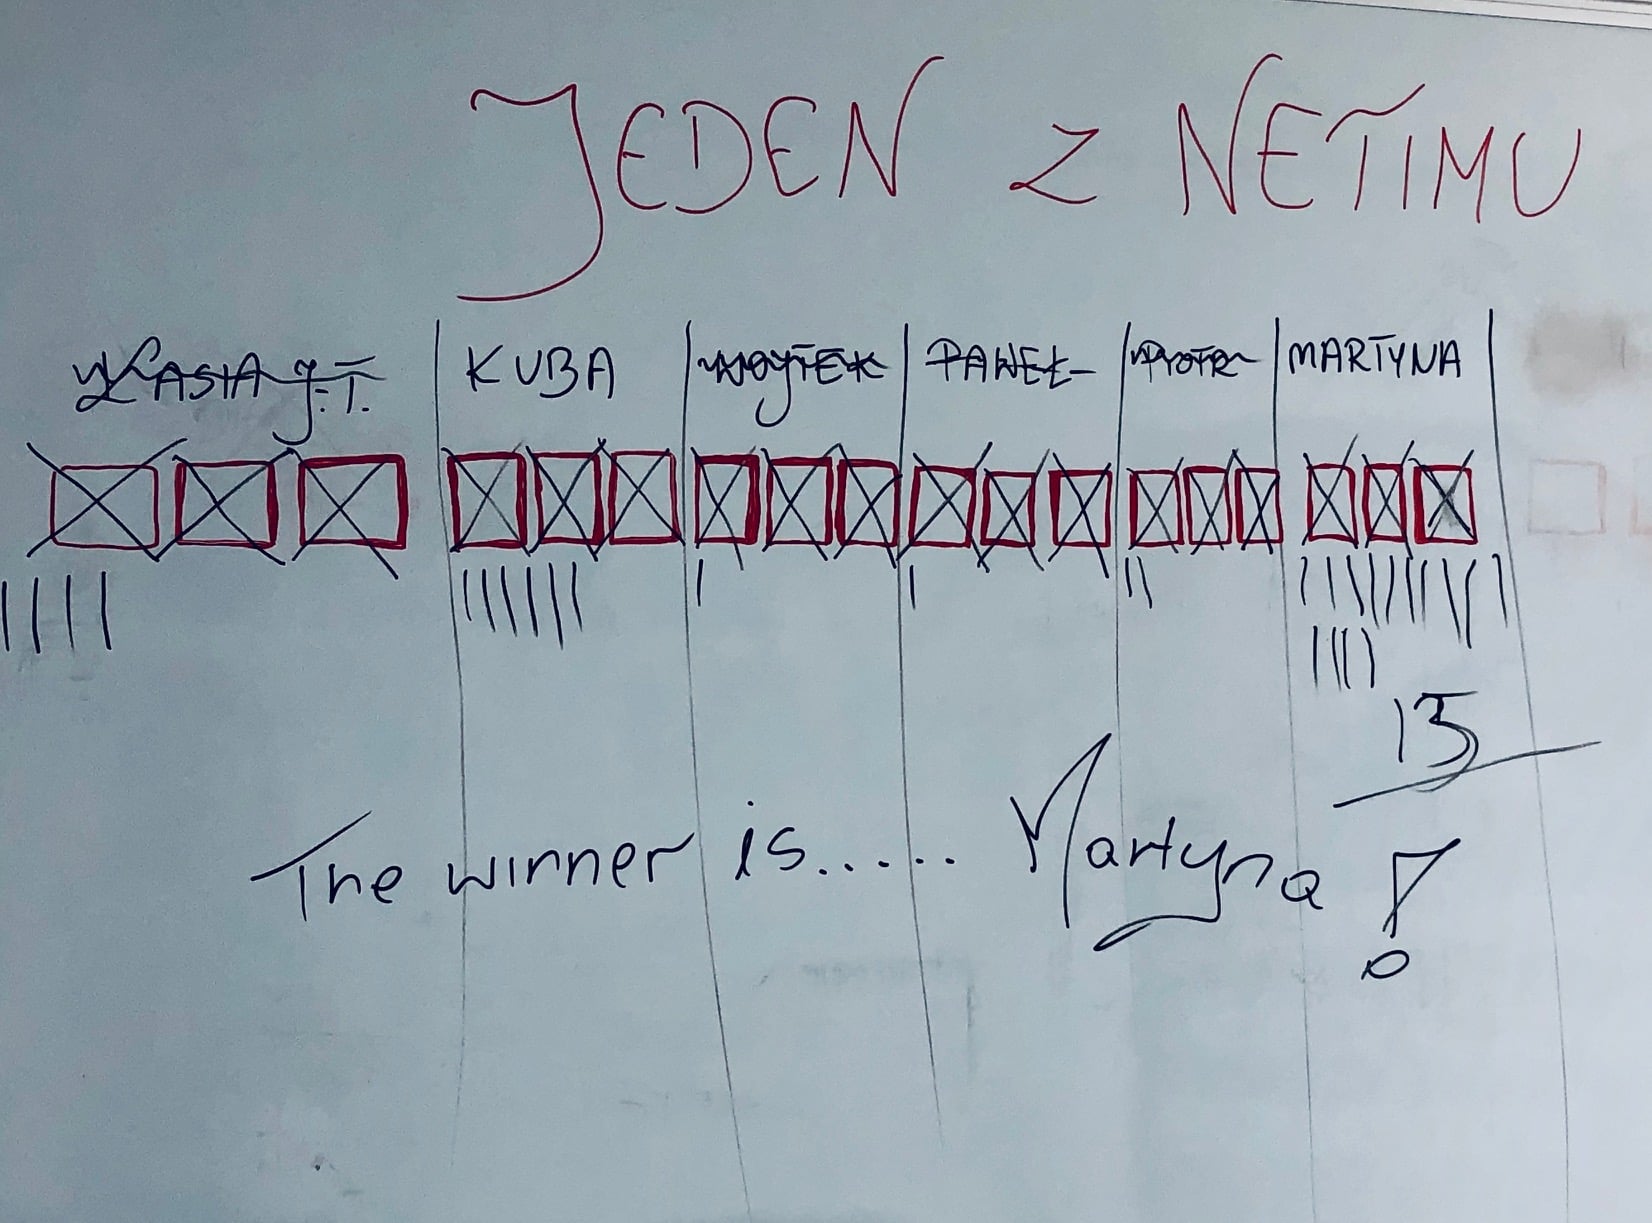 JEDEN Z NETIMU
KASIA J.T. KUBA WOJTEK PAWEŁ PIOTR MARTYNA
13
The winner is..... Martyna !